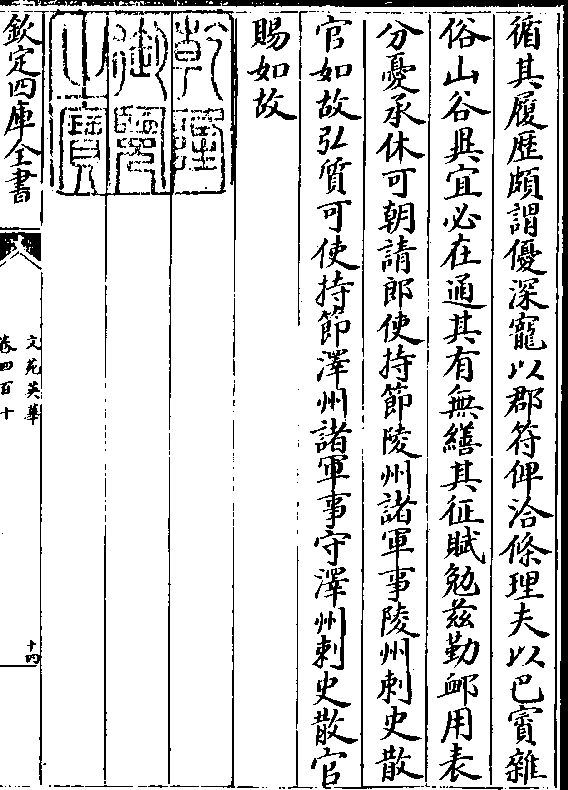 循其履歴頗謂優深寵以郡符俾洽條理夫以巴賨雜
俗山谷異宜必在通其有無繕其征賦勉兹勤䘏用表
分憂承休可朝請郎使持節陵州諸軍事陵州刺史散
官如故弘質可使持節澤州諸軍事守澤州刺史散官
賜如故
乾隆
御覽
之寶
欽定四庫全書
文苑英華
卷四百十
十四